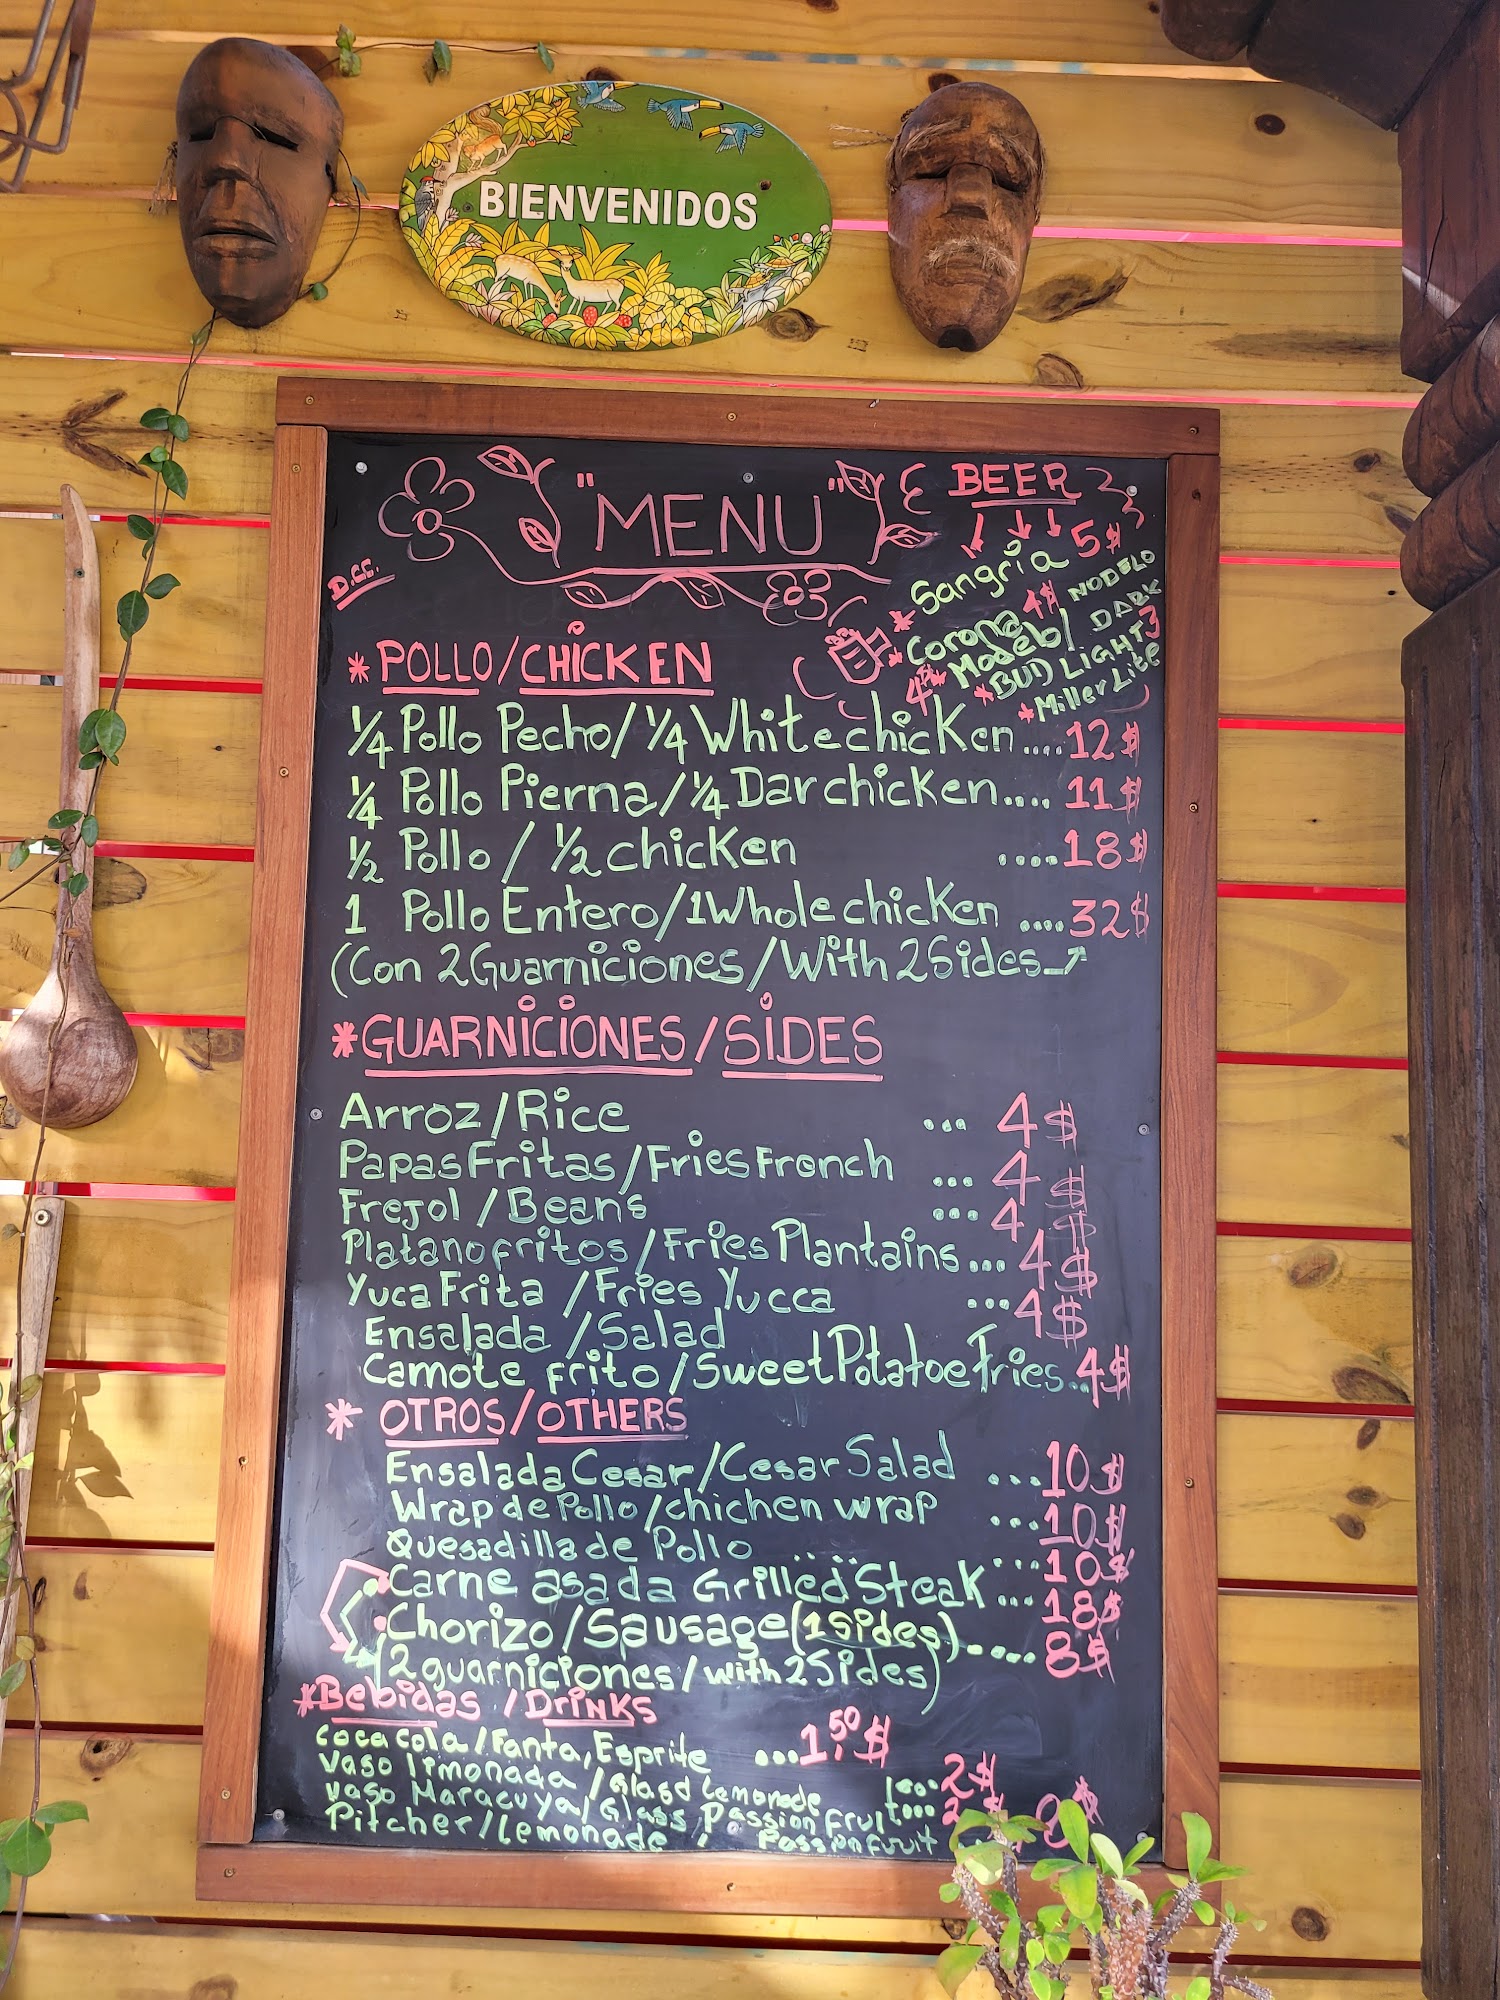 BIENVENIDOS
"MENU"
BEER
D.C.C.
* Sangria 5$
* Corona 4$ MODELO
4$* Modelo/ DARK
* BUD LIGHT 3
* Miller Lite
* POLLO/CHICKEN
1/4 Pollo Pecho/1/4 White chicken....12$
1/4 Pollo Pierna/1/4 Dar chicken.... 11$
1/2 Pollo / 1/2 chicken ....18$
1 Pollo Entero/1 Whole chicken ....32$
(Con 2 Guarniciones/With 2 Sides
* GUARNICIONES/SIDES
Arroz/Rice ... 4$
Papas Fritas/Fries Fronch ... 4$
Frejol / Beans ... 4$
Platano fritos/Fries Plantains... 4$
Yuca Frita / Fries Yucca ... 4$
Ensalada / Salad
Camote frito/Sweet Potatoe Fries...4$
* OTROS/OTHERS
Ensalada Cesar/Cesar Salad ...10$
Wrap de Pollo/chichen wrap ...10$
Quesadilla de Pollo ...10$
Carne asada Grilled Steak ...18$
Chorizo/Sausage(1 Sides).... 8$
(2 guarniciones/with 2 Sides)
*Bebidas / Drinks
Coca Cola/Fanta, Esprite ...1,50$
Vaso limonada /Glasd Lemonade ... 2$
Vaso Maracuya/Glass Passion fruit... 2$
Pitcher/Lemonade / Passion fruit 8$